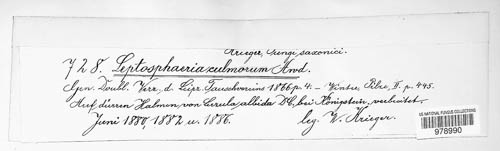 Krieger, fungi saxonici.
728. Leptosphaeria culmorum Awd.
Syn. Doubl. Verz. d. Leipz. Tauschvereins 1866 p. 4. – Winter, Pilze, II. p. 445.
Auf dürren Halmen von Carula albida DC, bei Königstein, verbreitet.
Juni 1880, 1882 u. 1886. leg. W. Krieger.
US NATIONAL FUNGUS COLLECTIONS
978990